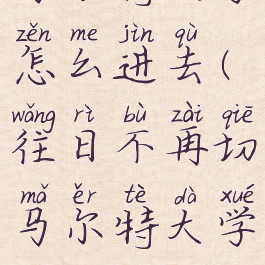 zěn me jìn qù
怎么进去(
wǎng rì bù zài qiē
往日不再切
mǎ ěr tè dà xué
马尔特大学